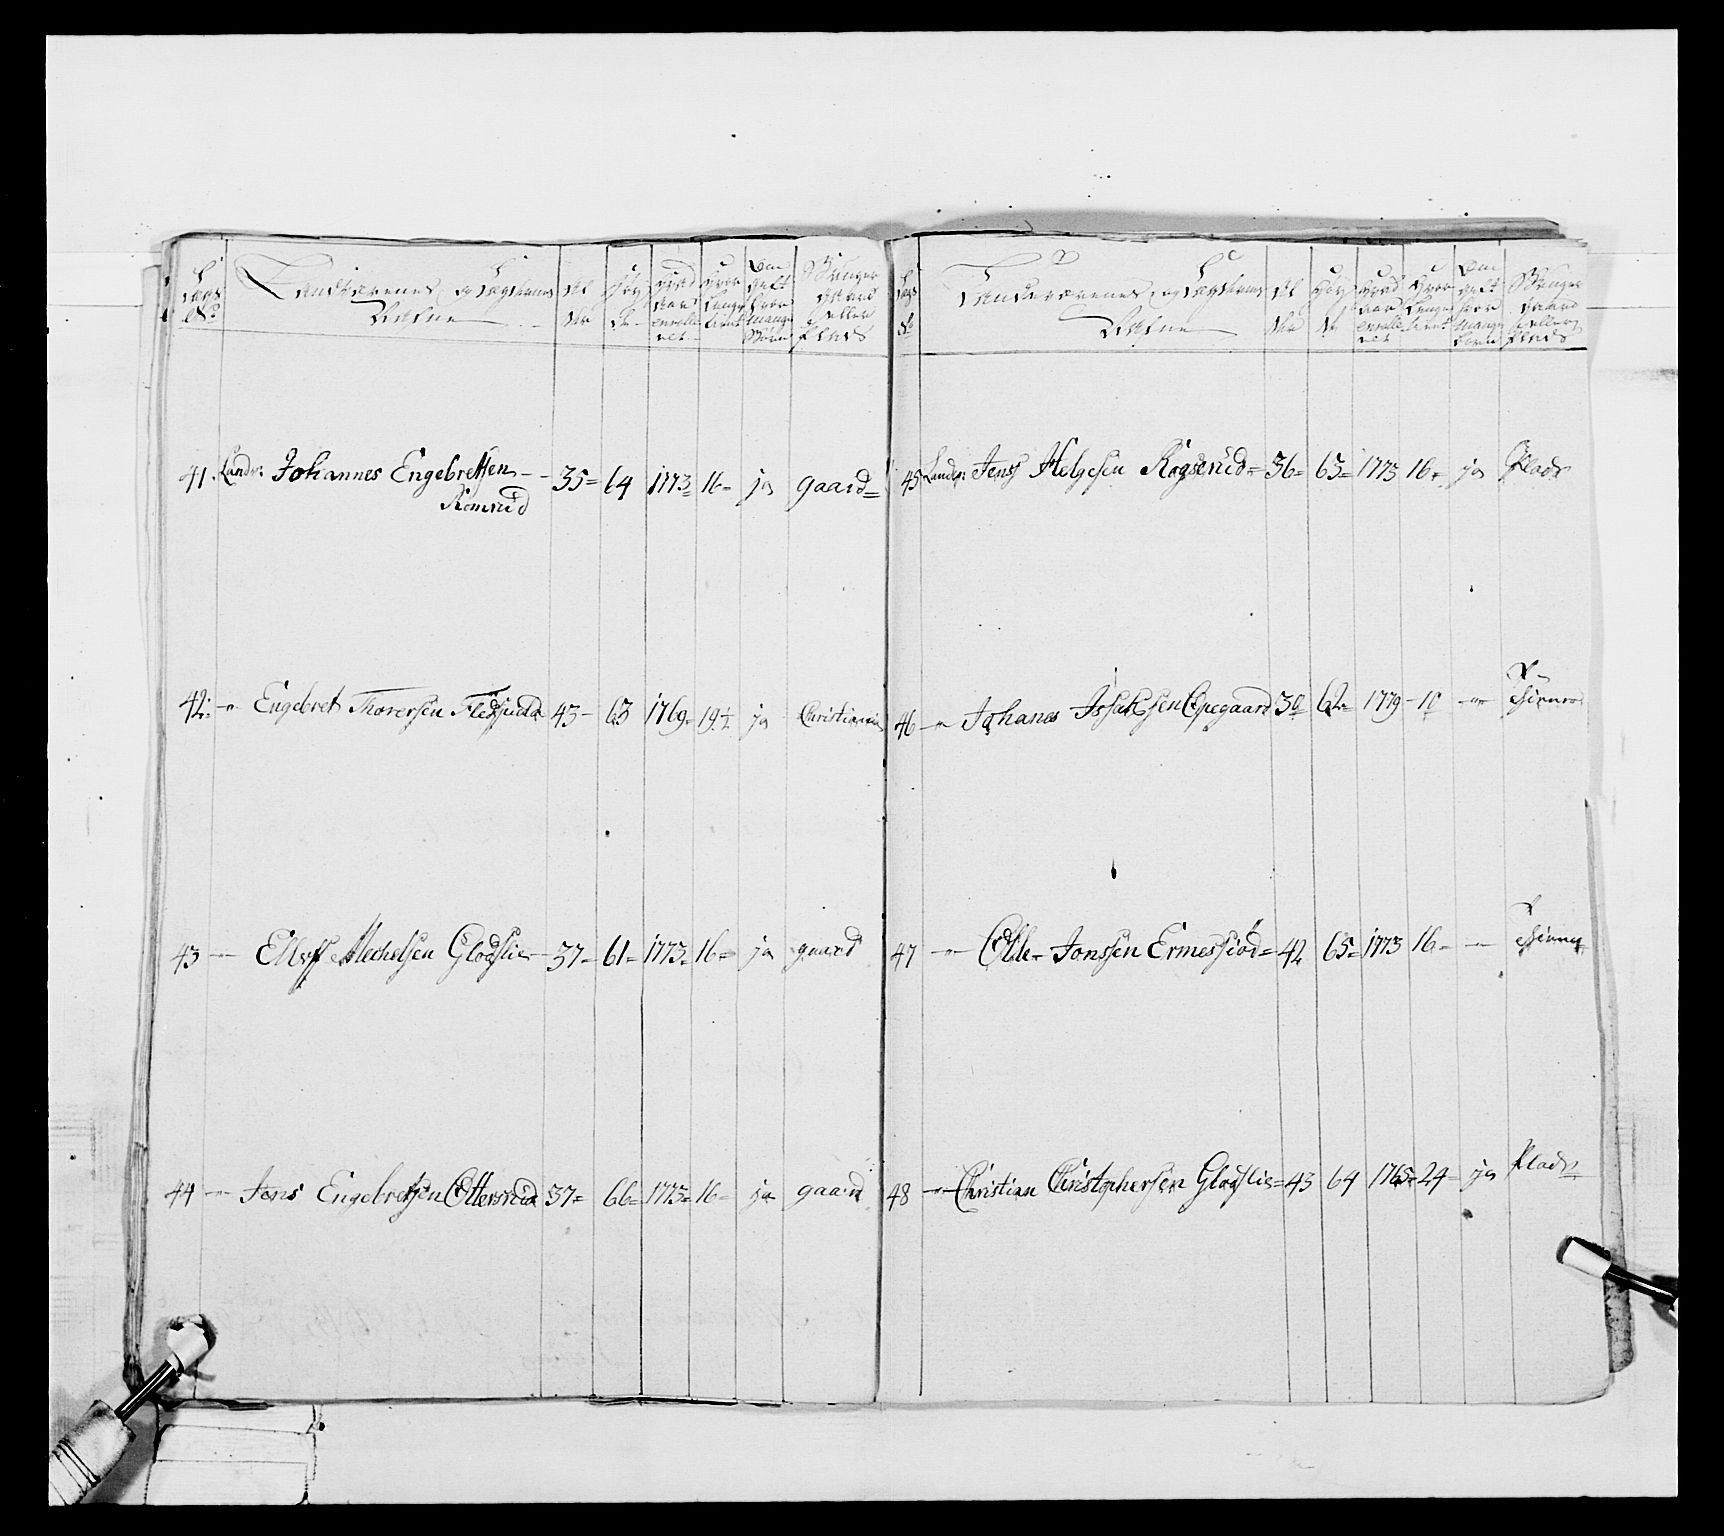 Lægs No
Landværenes og Lægdernes Nafne
Al der
Høy de
Hvad Aar enrolle ret
Hvor Længe tient
Om gift hvor mange Børn
Bruger Gaard eller Plads
41. Landv: Johannes Engebretsen Romerud - 35 = 64 1773 = 16 = ja gaard =
42: " Engebret Thoresen 43 - 63 1769 - 19 1/2 ja Christiania
43 " Ellef Mechelsen Glodslie - 37 - 61 = 1773 = 16 = ja gaard
44 " Jens Engebretsen Ottersrud 37 = 66 = 1773 = 16 - ja gaard
Lægs No
Landeværenes og Lægdernes Nafne
Al der
Høy de
Hvad aar enrolle ret
Hvor Længe tient
Om gift hvor mange børn
Bruger Gaard eller Plads
45 Landv: Jens Helgesen Rogserud = 36 = 63 = 1773 16 - ja Plads
46 " Johanes Isaksen Opegaard 30 62 = 1779 - 10 "
47 " Olle - Jonssen Ermessiød = 42 65 = 1773 16 - "
48 " Christian Christophersen Glodslie = 43 64 1765 = 24 - ja Plads